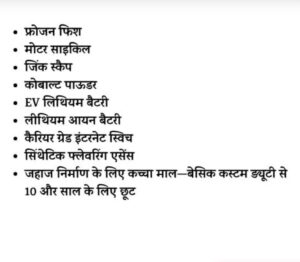 • फ्रोजन फिश
• मोटर साइकिल
• जिंक स्कैप
• कोबाल्ट पाऊडर
• EV लिथियम बैटरी
• लीथियम आयन बैटरी
• कैरियर ग्रेड इंटरनेट स्विच
• सिंथेटिक फ्लेवरिंग एसेंस
• जहाज निर्माण के लिए कच्चा माल—बेसिक कस्टम ड्यूटी से
10 और साल के लिए छूट